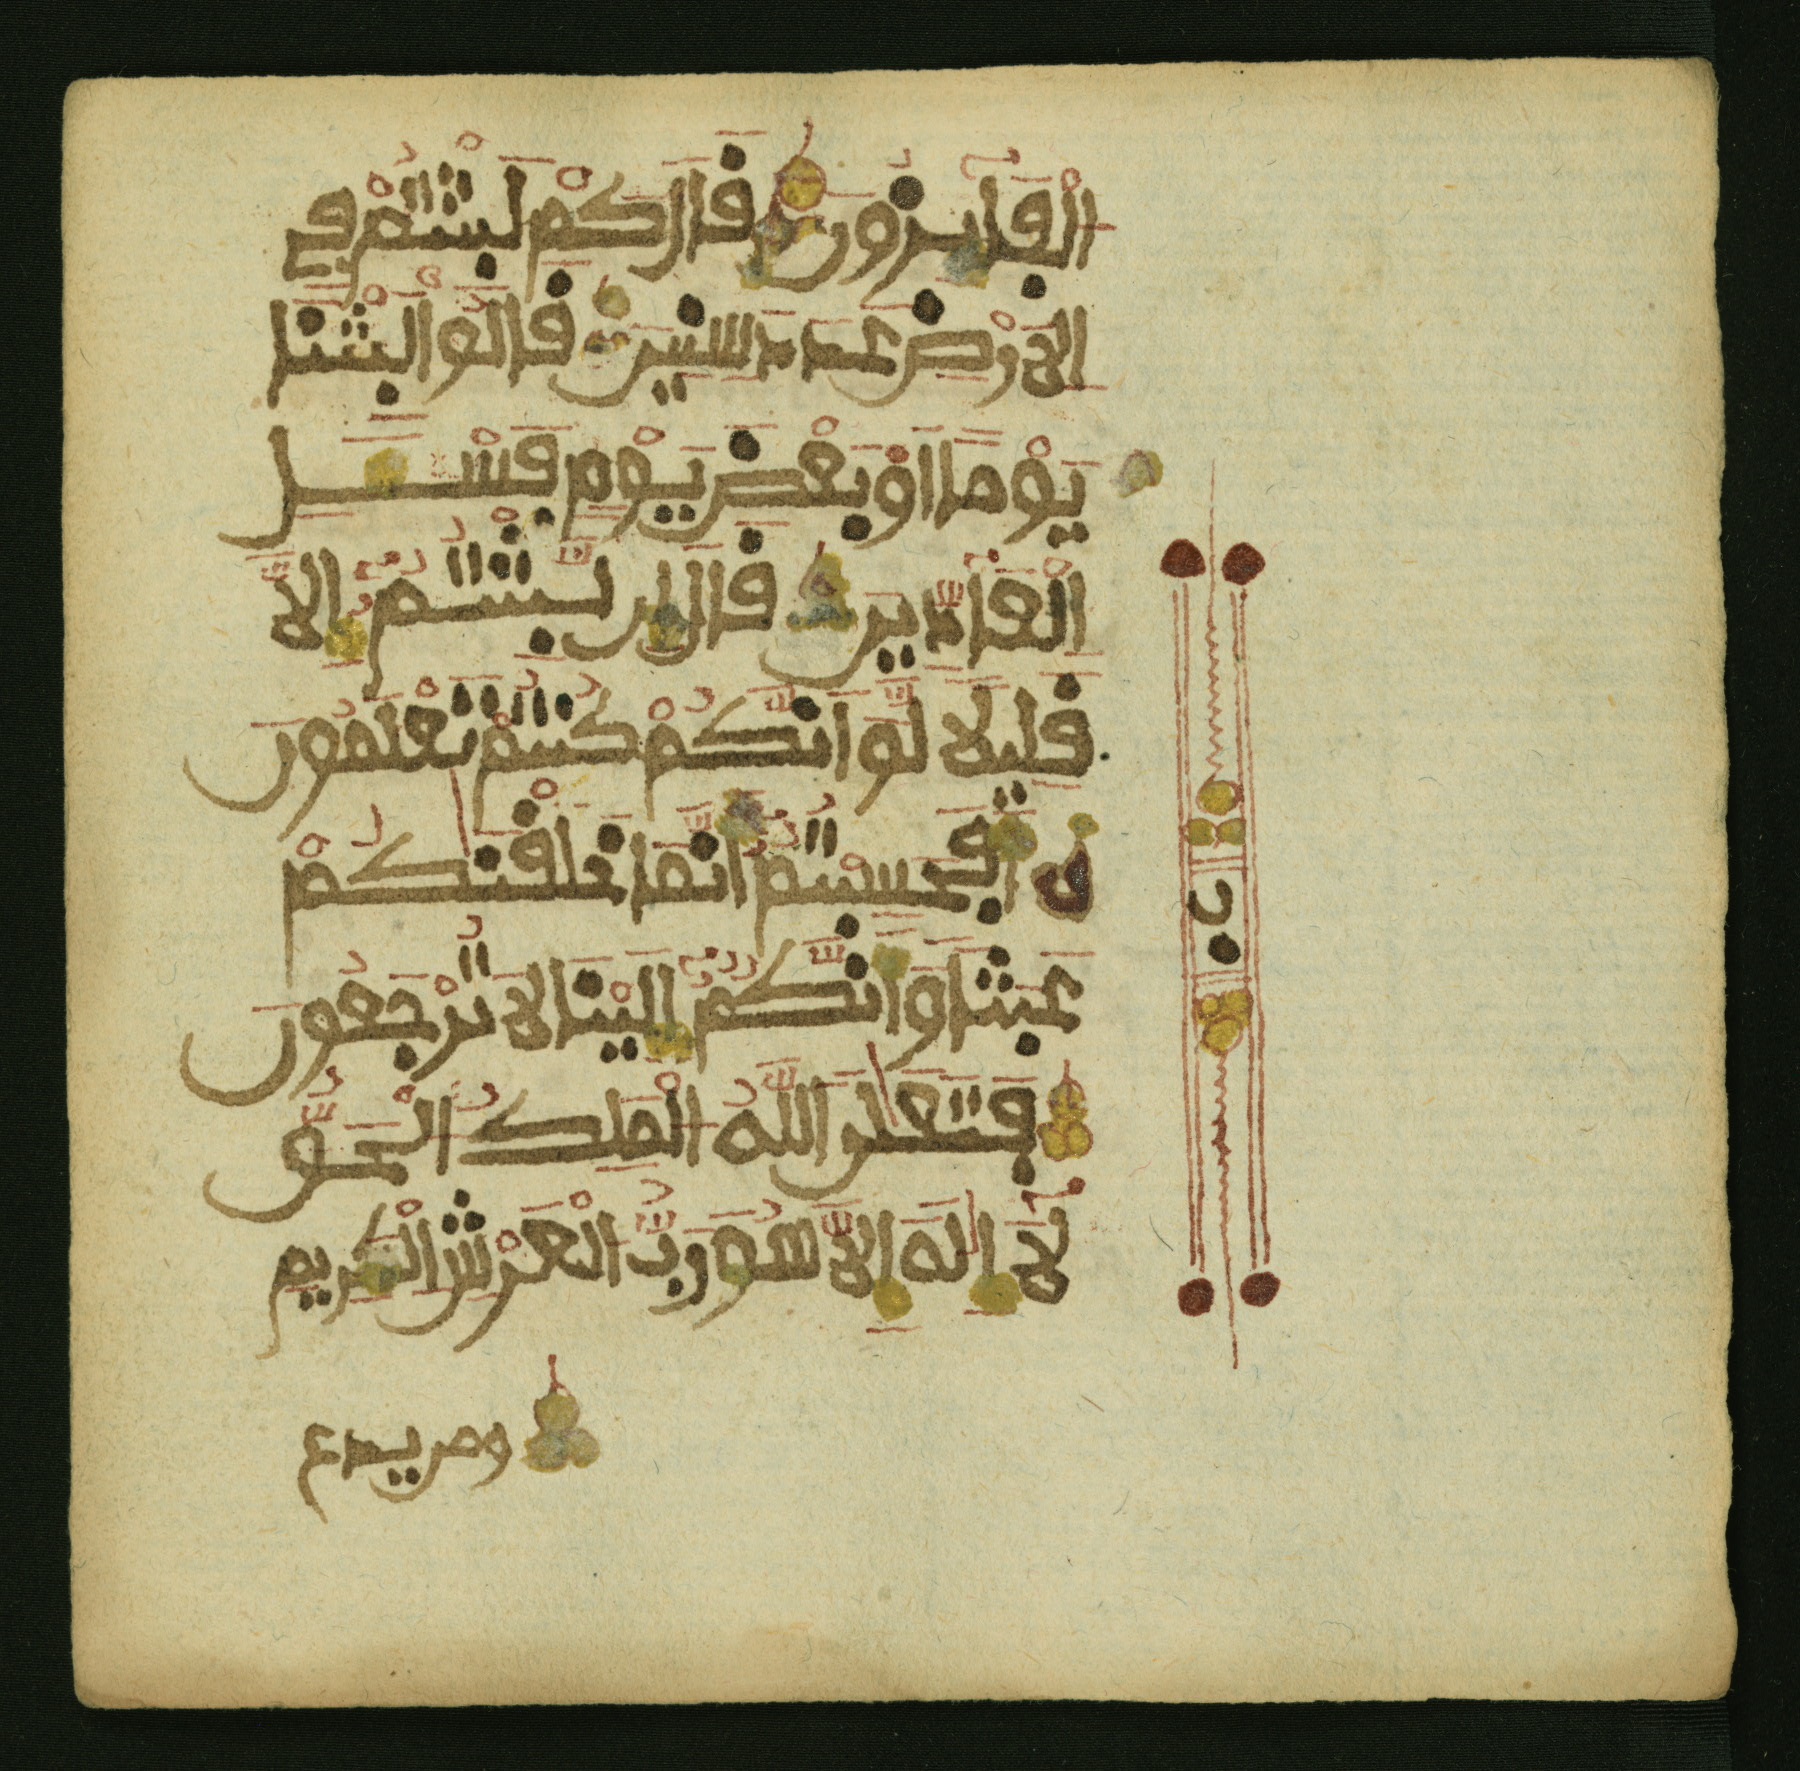 الْفَآىِٕزُونَ قَالَ كَمْ لَبِثْتُمْ فِے
اِ۬لَارْضِ عَدَدَ سِنِينَ قَالُواْ لَبِثْنَا
يَوْماً اَوْ بَعْضَ يَوْمٖ فَسْـَٔلِ
اِ۬لْعَآدِّينَ قَالَ إِن لَّبِثْتُمُۥٓ إِلَّا
قَلِيلاٗ لَّوَ اَنَّكُمْ كُنتُمْ تَعْلَمُونَ
أَفَحَسِبْتُمُۥٓ أَنَّمَا خَلَقْنَٰكُمْ
عَبَثاٗ وَأَنَّكُمُۥٓ إِلَيْنَا لَا تُرْجَعُونَ
فَتَعَٰلَى اَ۬للَّهُ اُ۬لْمَلِكُ اُ۬لْحَقُّ
لَآ إِلَٰهَ إِلَّا هُوَ رَبُّ اُ۬لْعَرْشِ اِ۬لْكَرِيمِ
ومن يدع